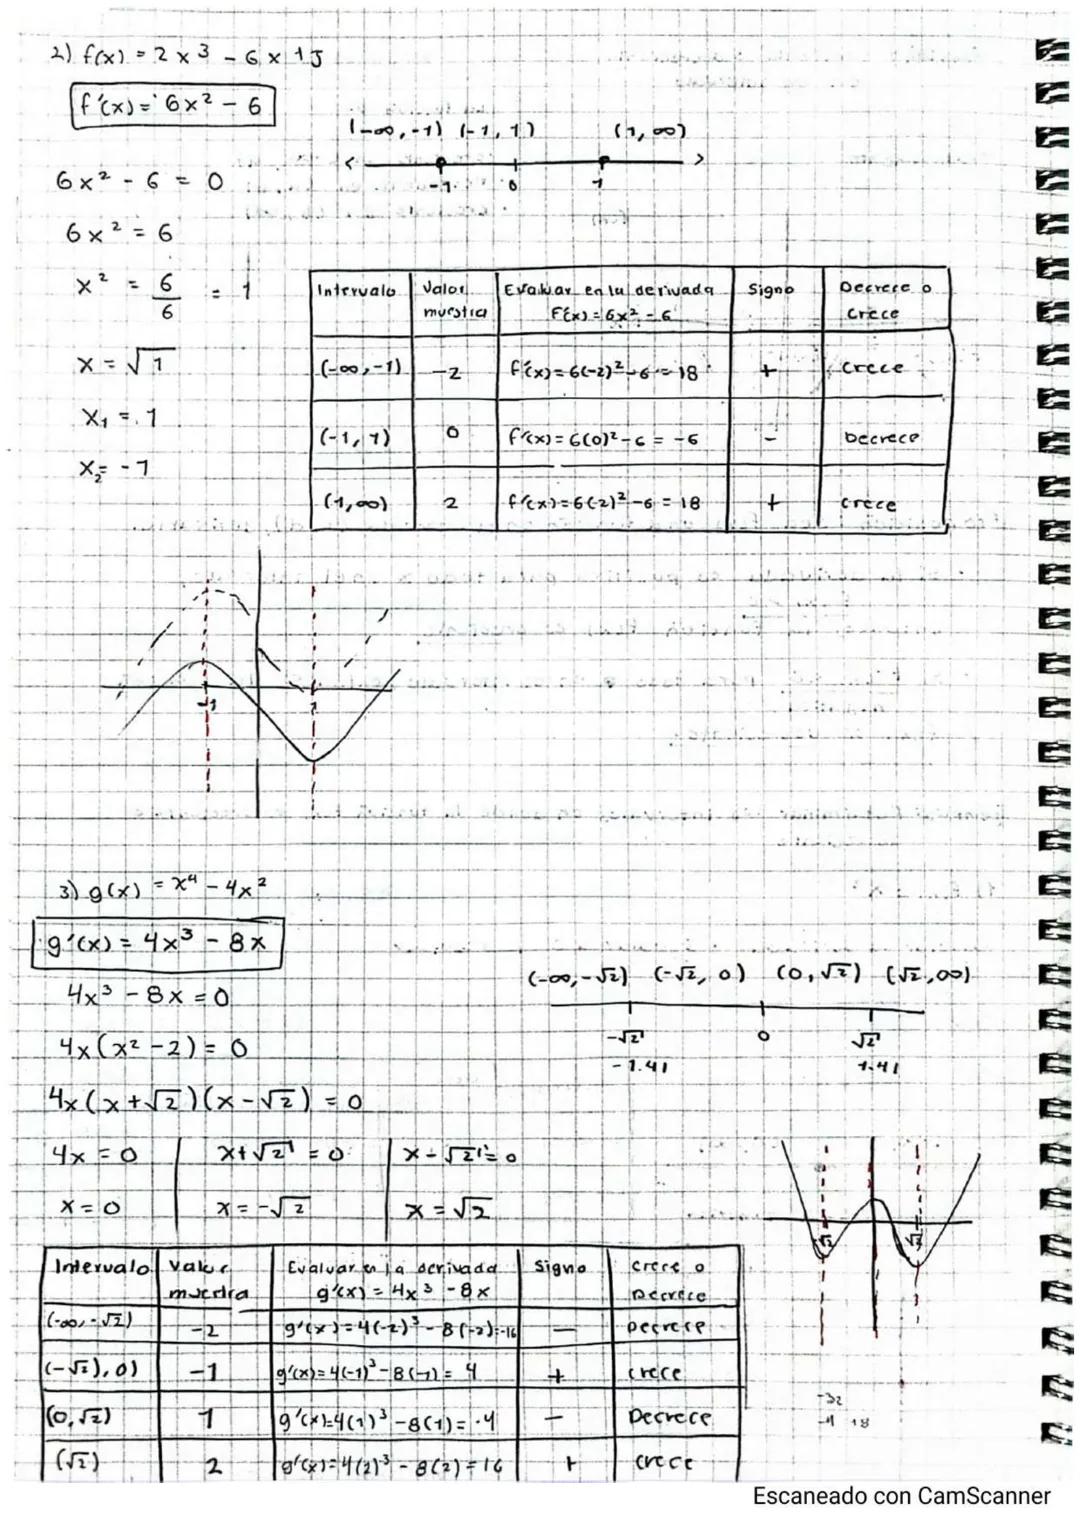 2) f(x) = 2x3 - 6x+5
f'(x) = 6x² - 6
(-∞,-1) (-1, 1) (1, ∞)
-1 0 1
6x² - 6 = 0
6x² = 6
x² = 6/6 = 1
x = √1
x₁ = 1
x₂ = -1
Intervalo Valor muestra Evaluar en la derivada f'(x) = 6x² - 6 Signo Decrece o Crece
(-∞,-1) -2 f'(x) = 6(-2)² - 6 = 18 + Crece
(-1, 1) 0 f'(x) = 6(0)² - 6 = -6 - Decrece
(1, ∞) 2 f'(x) = 6(2)² - 6 = 18 + crece
-1 1
3) g(x) = x⁴ - 4x²
g'(x) = 4x³ - 8x
4x³ - 8x = 0
4x(x² - 2) = 0
4x(x+√2)(x-√2) = 0
(-∞,-√2) (-√2, 0) (0, √2) (√2, ∞)
-√2 0 √2
-1.41 1.41
4x = 0 x+√2 = 0 x-√2 = 0
x = 0 x = -√2 x = √2
-√2 √2
Intervalo Valor muestra Evaluar en la derivada g'(x) = 4x³ - 8x Signo Crece o Decrece
(-∞,-√2) -2 g'(x) = 4(-2)³ - 8(-2) = -16 - Decrece
(-√2), 0) -1 g'(x) = 4(-1)³ - 8(-1) = 4 + crece
(0, √2) 1 g'(x) = 4(1)³ - 8(1) = -4 - Decrece
(√2) 2 g'(x) = 4(2)³ - 8(2) = 16 + crece
-32
Escaneado con CamScanner